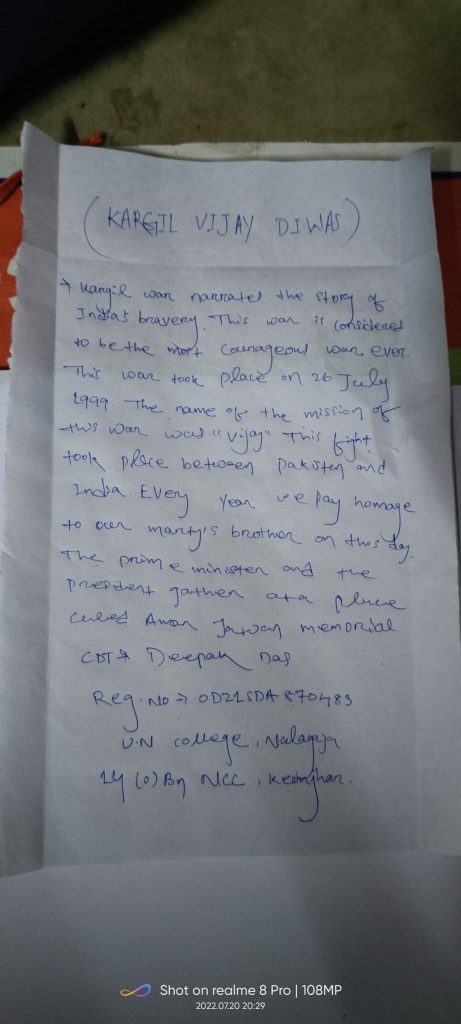 (KARGIL VIJAY DIWAS)
→ Kargil war narrates the story of
India's bravery. This war is considered
to be the most Courageous war ever.
This war took place on 26 July
1999 The name of the mission of
this war was "Vijay" This fight
took place between Pakisten and
India Every year we pay homage
to our marty's brother on this day.
The prime minister and the
president gather at a place
called Amar Jawan memorial
CDT → Deepak Das
Reg. No → OD21SDA870483
U.N college, Nalagaja
14 (O) Bn NCC, Keonjhar.
Shot on realme 8 Pro | 108MP
2022.07.20 20:29